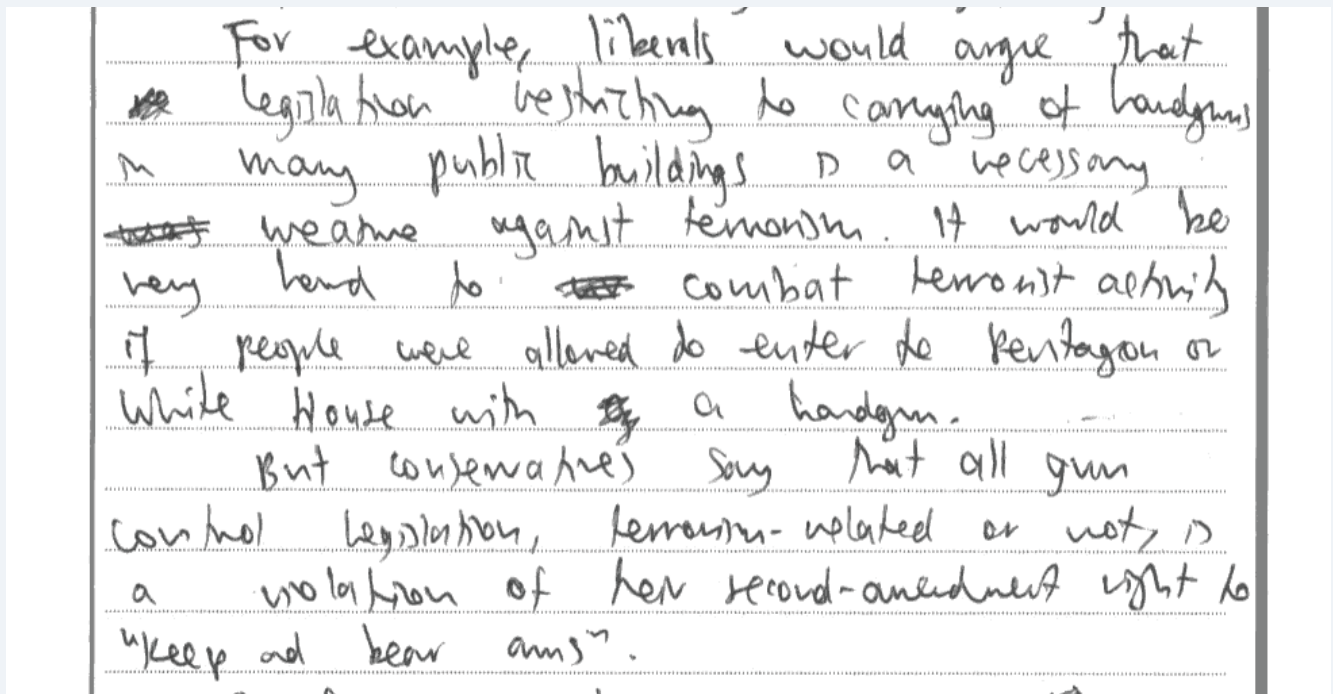 For example, liberals would argue that
legislation restricting the carrying of handguns
in many public buildings is a necessary
measure against terrorism. It would be
very hard to combat terrorist activity
if people were allowed to enter the Pentagon or
White House with a handgun.
But conservatives say that all gun
control legislation, terrorism-related or not, is
a violation of their second-amendment right to
"keep and bear arms".